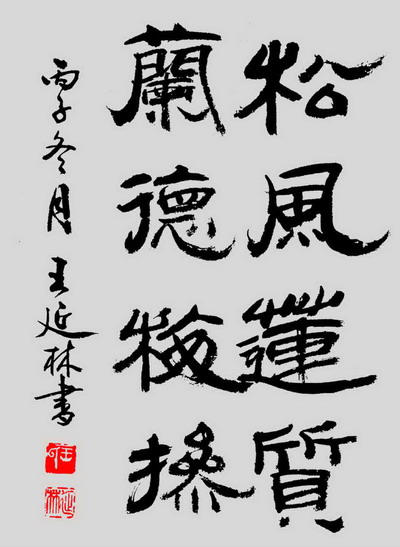 松風蓮質
蘭德梅操
丙子冬月王延林書